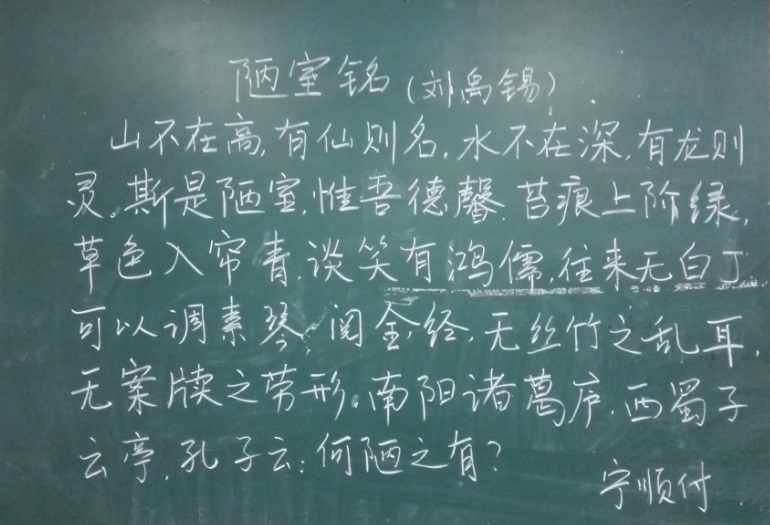 陋室铭(刘禹锡)
山不在高,有仙则名.水不在深,有龙则
灵。斯是陋室,惟吾德馨.苔痕上阶绿,
草色入帘青.谈笑有鸿儒,往来无白丁
可以调素琴,阅金经.无丝竹之乱耳,
无案牍之劳形.南阳诸葛庐.西蜀子
云亭.孔子云:何陋之有?
宁顺付